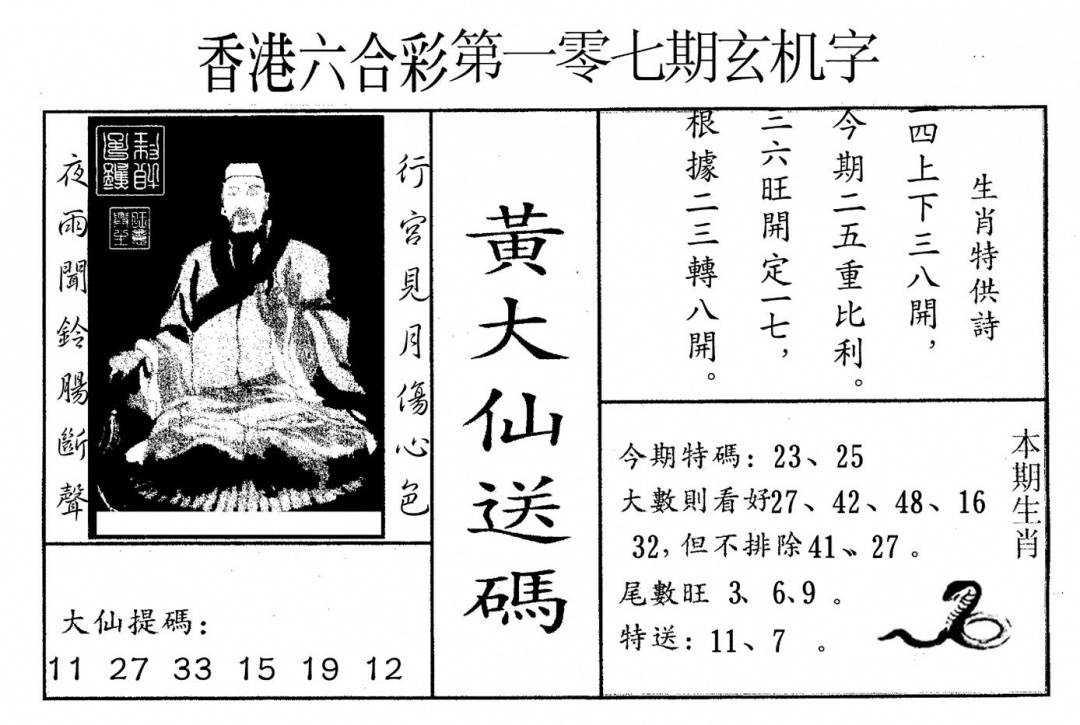 香港六合彩第一零七期玄机字
行宮見月傷心色
夜雨聞鈴腸斷聲
大仙提碼:
11 27 33 15 19 12
黃大仙送碼
生肖特供詩
一四上下三八開，
今期二五重比利。
三六旺開定一七，
根據二三轉八開。
本期生肖
今期特碼: 23、25
大數則看好27、42、48、16
32, 但不排除41、27 。
尾數旺 3、6、9 。
特送: 11、7 。